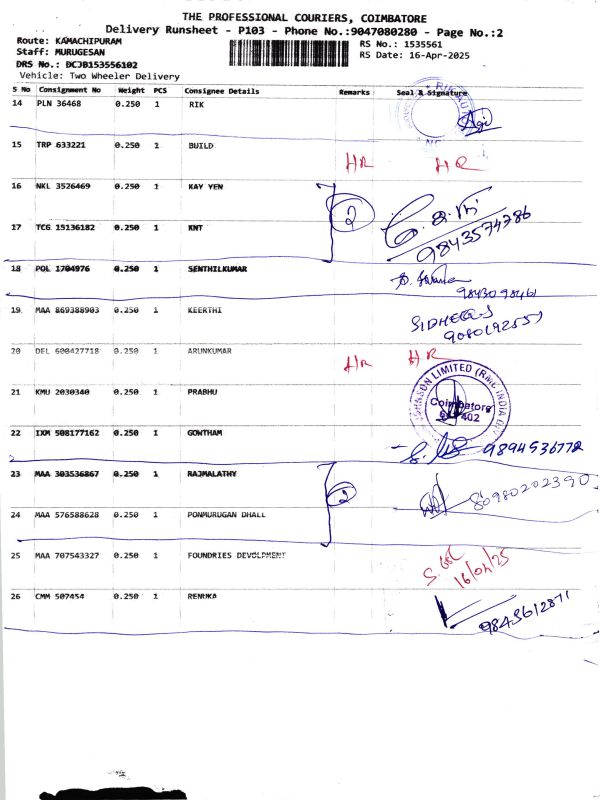 THE PROFESSIONAL COURIERS, COIMBATORE
Delivery Runsheet - P103 - Phone No.:9047080280 - Page No.:2
Route: KAMACHIPURAM
RS No.: 1535561
Staff: MURUGESAN
RS Date: 16-Apr-2025
DRS No.: DCJB153556102
Vehicle: Two Wheeler Delivery
S No Consignment No Weight PCS Consignee Details Remarks Seal & Signature
14 PLN 36468 0.250 1 RIK
15 TRP 633221 0.250 1 BUILD HR HR
16 NKL 3526469 0.250 1 KAY YEN 2
17 TCG 15136182 0.250 1 KNT 9843574786
18 POL 1704976 0.250 1 SENTHILKUMAR 9843098461
19 MAA 869388903 0.250 1 KEERTHI 9080192551
20 DEL 600427718 0.250 1 ARUNKUMAR HR HR
21 KMU 2030340 0.250 1 PRABHU
JOHNSON LIMITED
INDIA
Coimbatore
22 IXM 508177162 0.250 1 GOWTHAM 9894536772
23 MAA 303536867 0.250 1 RAJMALATHY 2 80980202390
24 MAA 576588628 0.250 1 PONMURUGAN DHALL
25 MAA 707543327 0.250 1 FOUNDRIES DEVOLPMENT 16/04/25
26 CMM 507454 0.250 1 RENUKA 9843612871